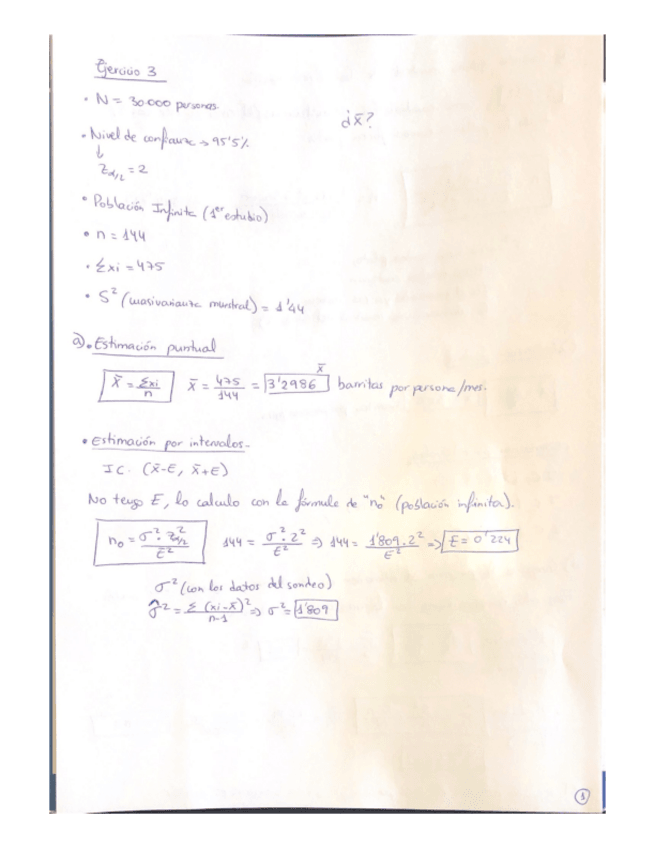 Ejercicio 3
• N = 30000 personas.
¿x̄?
• Nivel de confianza → 95'5%
↓
Z α/2 = 2
• Población Infinita (1er estudio)
• n = 144
• Σxi = 475
• S² (cuasivarianza muestral) = 1'44
a). Estimación puntual
x̄ = Σxi/n x̄ = 475/144 = 3'2986 x̄ barritas por persona/mes.
• Estimación por intervalos.-
I C. (x̄-E, x̄+E)
No tengo E, lo calculo con la fórmula de "n₀" (población infinita).
n₀ = σ² · Z²α/2 / E² 144 = σ² · 2² / E² ⇒ 144 = 1'809 · 2² / E² ⇒ E = 0'224
σ² (con los datos del sondeo)
σ̂² = Σ (xi - x̄)² / n-1 ⇒ σ² = 1'809
1